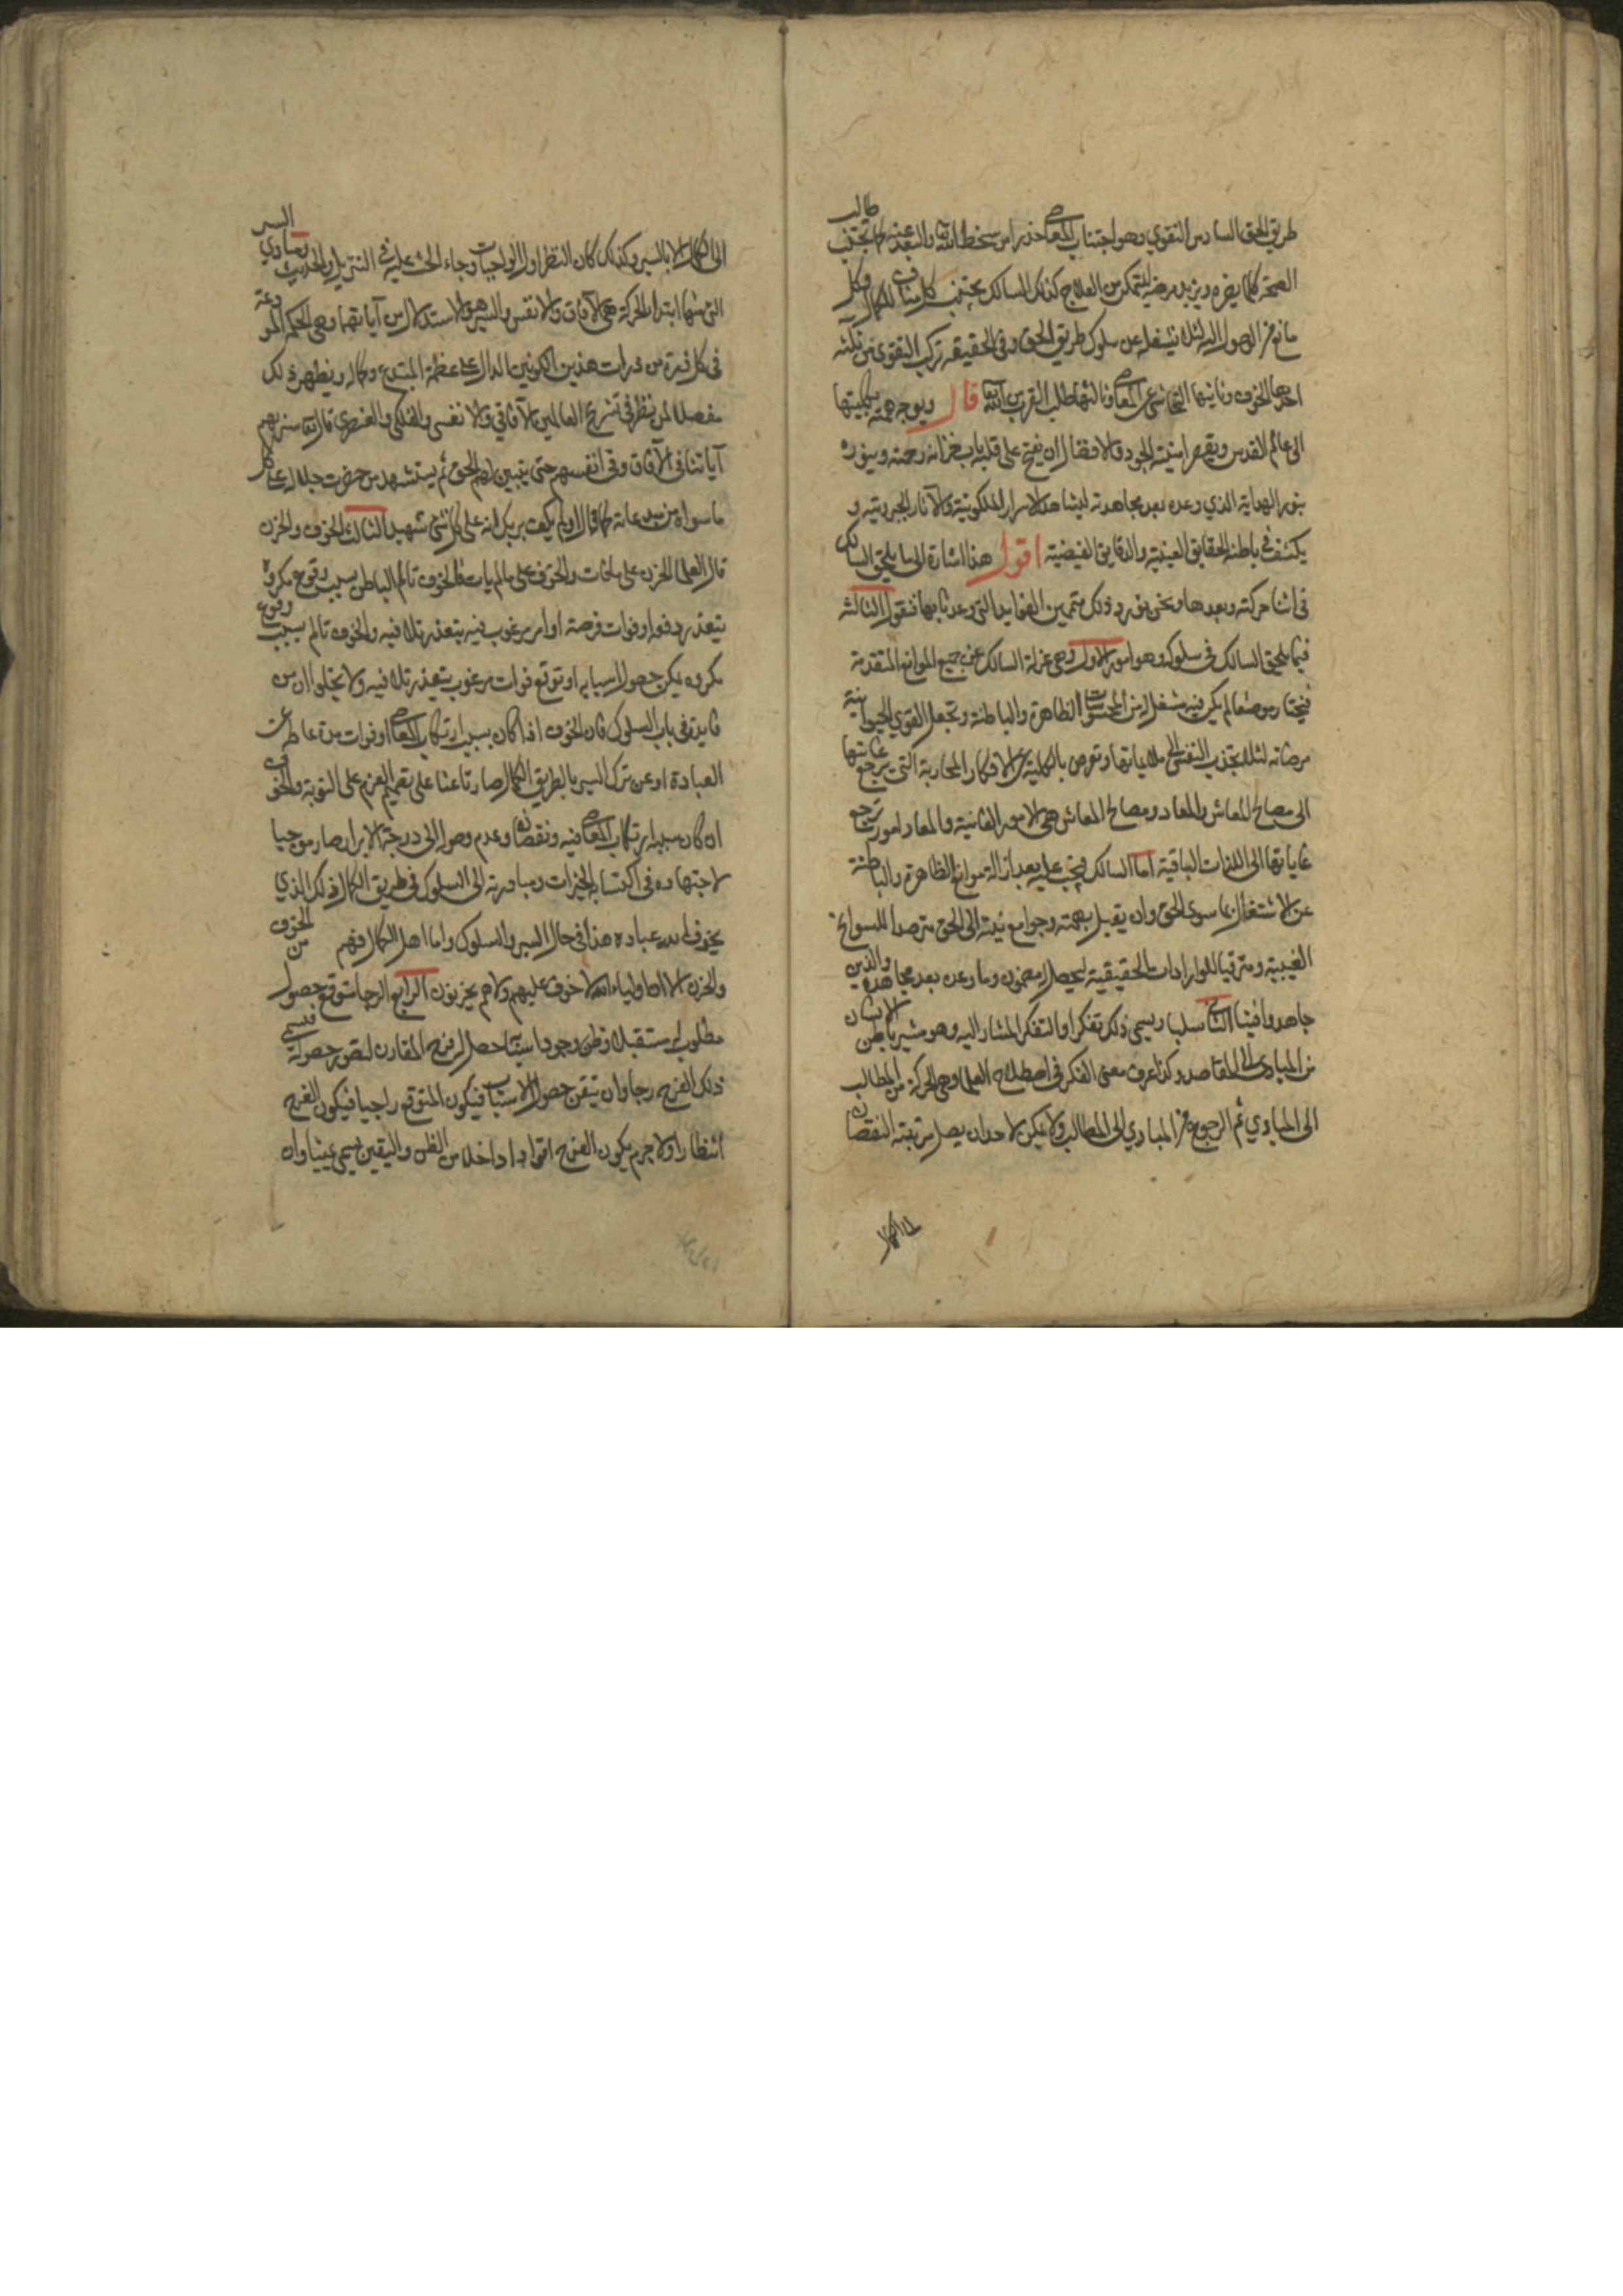 طريق الحق السادس التقوي وهو اجتناب المعاصي حذرا من سخط الله تعالى والبعد عنه كما يجتنب طالب
الصحة كلما يضره ويزيد مرضه ليتمكن من العلاج كذلك السالك يجتنب كل مناف للكمال وكل
مانع من الوصول اليه لئلا يشغله عن سلوك طريق الحق وفي الحقيقة تركب التقوي من ثلثه
احدها الخوف وثانيها التحاشي عن المعاصي وثالثها طلب القرب من الله تعالى قال ويوجه همته بكليتها
الى عالم القدس ويقصر امنيته الجود والافضال ان يفتح على قلبه باب خزانه رحمته وينوره
بنور الهداية الذي وعده بعد مجاهدته ليشاهد الاسرار الملكوتية والآثار الجبروتيه و
يكشف في باطنه الحقايق الغيبيه والدقايق الفيضيه اقول هذا اشارة الى ما يلحق السالك
في اثنا حركته وبعدها ونحن نورد ذلك متممين الفوايد التي وعدنا بها فنقول الثالثه
فيما يلحق السالك في سلوكه وهو امور الاول وهي عزلة السالك عن جميع الموانع المتقدمة
فيختار موضعا لم يكن فيه مشغل من المحسوسات الظاهرة والباطنة وتجعل القوي الحيوانية
مرضاته لئلا يجذب النفس الى ملايماتها وتعرض بالكلية عن الافكار المجازية التي يرجع غايتها
الى مصالح المعاش والمعاد ومصالح المعاش هي الامور الفانية والمعاد امور ترجع
غاياتها الى اللذات الباقية اما السالك فيجب عليه بعد ازالة موانع الظاهرة والباطنة
عن الاشتغال بما سوى الحق وان يقبل بهمته وجوامع نيته الى الحق مترصدا للسوانح
الغيبية ومترقبا للوارادات الحقيقية ليحصل له مضمون وما وعده بعد مجاهده والذين
جاهدوا فينا الثاني سلبا ويسمى ذلك تفكرا والتفكر المشار اليه وهو سير باطن الانسان
من المبادي الى المقاصد وكذا عرف معنى الفكر في اصطلاح العلما وهي الحركة من المطالب
الى المبادي ثم الرجوع من المبادي الى المطالب ولا يمكن لاحد ان يصل مرتبته النقصان
الى الكمال
الى الكمال الا بالسير وكذلك كان النظر اول الواجبات وجاء الحث عليه في التنزيل والحديث ومبادي السير
التي منها ابتداء الحركة هي الآفاق والانفس والسير هو الاستدلال من آياتهما وهي الحكم المودعة
في كل ذرة من ذرات هذين الكونين الدال على عظمة المبدع وكماله ويظهر ذلك
مفصلا لمن نظر في تشريح العالمين الآفاقي والانفسي والفلكي والعنصري قال تعالى سنريهم
آياتنا في الآفاق وفي انفسهم حتى يتبين لهم الحق ثم يستشهد من حضرت جلاله على كل
ما سواه من مبدعاته كما قال اولم يكف بربك انه على كل شئ شهيد الثالث الخوف والحزن
قال العلما الحزن على ما فات والخوف على ما لم يات فالخوف تالم الباطن بسبب وقوع مكروه
يتعذر دفعه او فوات فرصة او امر مرغوب فيه يتعذر تلافيه والخوف تالم بسبب وقوع
مكروه يمكن حصول اسبابه او توقع فوات مرغوب يتعذر تلافيه ولا يخلوان من
فايدة في باب السلوك فان الخوف اذا كان بسبب ارتكاب المعاصي او فوات مدة عاطلة عن
العبادة او عن ترك السير بالطريق الكمال صار باعثا على تصميم العزم على التوبة والخوف
ان كان سببه ارتكاب المعاصي فيه ونقصانه وعدم وصوله الى درجة الابرار صار موجبا
لاجتهاده في اكتساب الخيرات ومبادرته الى السلوك في طريق الكمال ذلك الذي
يخوف الله عباده هذا في حال السير والسلوك واما اهل الكمال فهم من الخوف
والحزن الا ان اولياء الله لا خوف عليهم ولا هم يحزنون الرابع الرجا متوقع حصول
مطلوب له مستقبلا وظن وجود اسبابه حصل له فرح المقارن لتصور حصوله فيسمى
ذلك الفرح رجا وان تيقن حصول الاسباب فيكون المتوقع راجيا فيكون الفرح
انتظارا ولا جرم يكون الفرح اقوى اذا داخله من الظن واليقين يسمى عينا وان